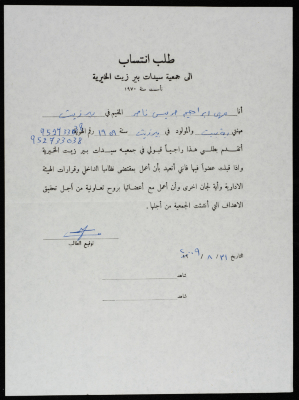 طلب انتساب
الى جمعية سيدات بير زيت الخيرية
تأسست سنة ١٩٧٠
أنا ناصر المقيم في بيرزيت
مهنتي والمولود في بيرزيت سنة رقم الهوية
952733038
أتقدم بطلبي هذا راجياً قبولي في جمعية سيدات بير زيت الخيرية
واذا قبلت عضواً فيها فانني أتعهد بأن أعمل بمقتضى نظامها الداخلي وقرارات الهيئة
الادارية وأية لجان اخرى وأن أعمل مع أعضائها بروح تعاونية من أجل تطبيق
الاهداف التي أنشئت الجمعية من أجلها.
توقيع الطالب
التاريخ ٣١ / ٨ / ٢٠٠٩
شاهد
شاهد